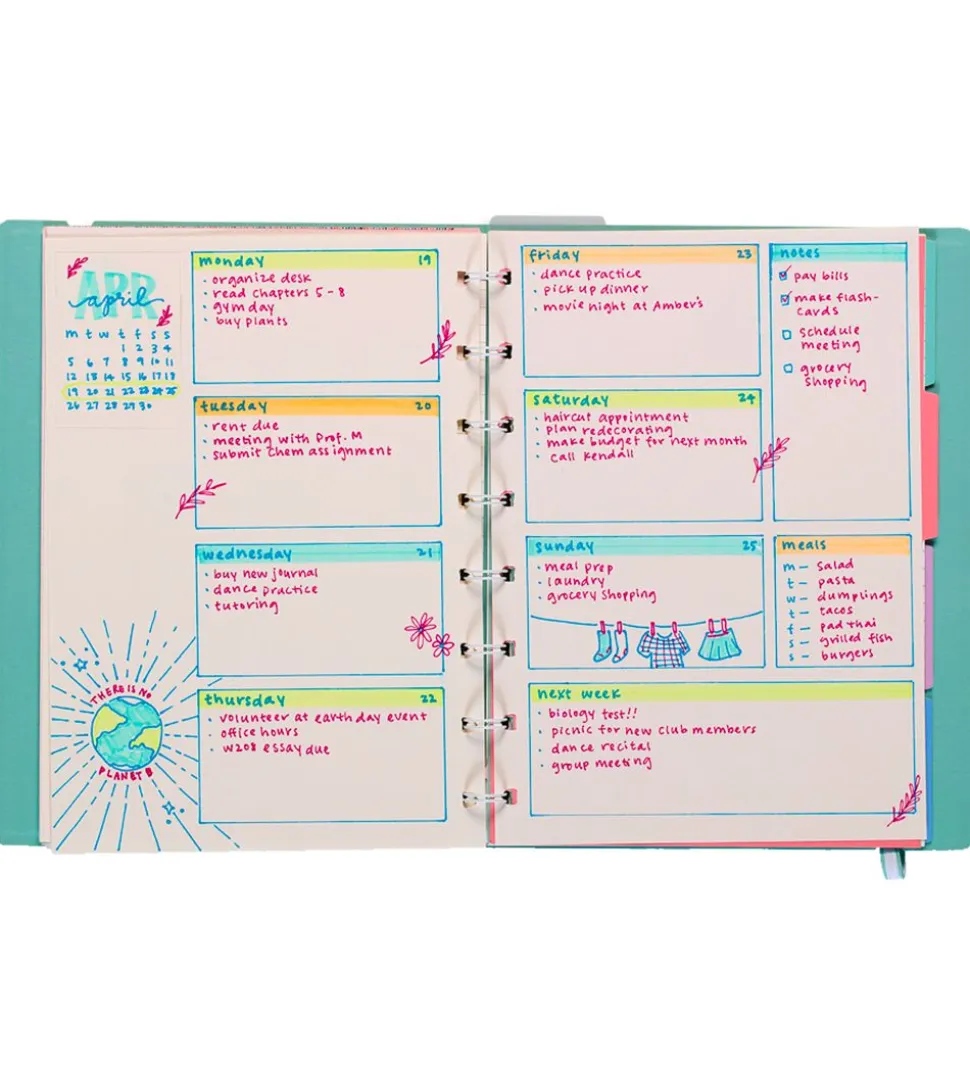 APR
april
m t w t f s s
1 2 3 4
5 6 7 8 9 10 11
12 13 14 15 16 17 18
19 20 21 22 23 24 25
26 27 28 29 30
THERE IS NO
PLANET B
monday 19
· organize desk
· read chapters 5-8
· gym day
· buy plants
tuesday 20
· rent due
· meeting with Prof. M
· submit chem assignment
wednesday 21
· buy new journal
· dance practice
· tutoring
thursday 22
· volunteer at earth day event
· office hours
· W208 essay due
friday 23
· dance practice
· pick up dinner
· movie night at Amber's
saturday 24
· haircut appointment
· plan redecorating
· make budget for next month
· call kendall
sunday 25
· meal prep
· laundry
· grocery shopping
notes
pay bills
make flash-
cards
schedule
meeting
grocery
shopping
meals
m - salad
t - pasta
w - dumplings
t - tacos
f - pad thai
s - grilled fish
s - burgers
next week
· biology test!!
· picnic for new club members
· dance recital
· group meeting